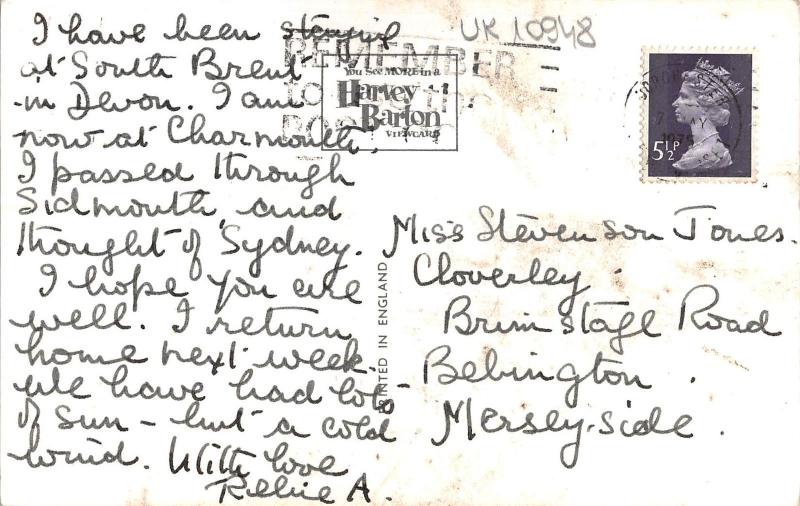 I have been staying
at South Brent
in Devon. I am
now at Charmouth.
I passed through
Sidmouth, and
thought of Sydney.
I hope you are
well. I return
home next week.
We have had lots
of sun - but a cold
wind. With love
A.
UK 10948
REMEMBER
to
You See MORE in a
Harvey
Barton
VIEWCARD
5½P
MAY
1975
PRINTED IN ENGLAND
Miss Stevenson Jones.
Cloverley.
Brimstage Road
Bebington.
Mersey-side.